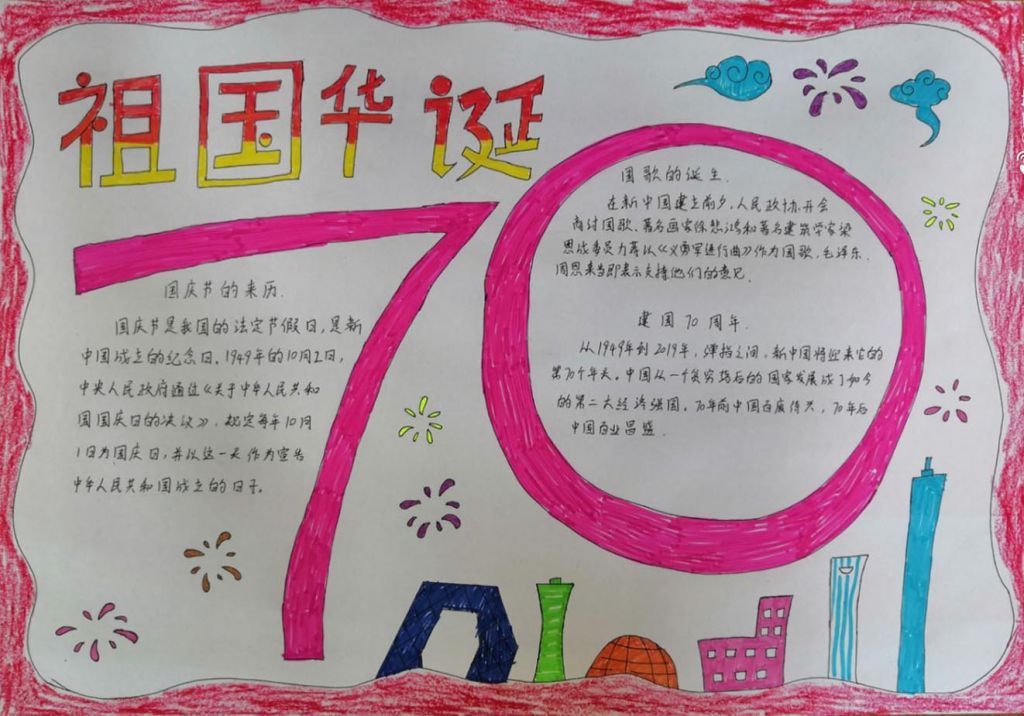 祖国华诞
70
国庆节的来历.
国庆节是我国的法定节假日,是新
中国成立的纪念日。1949年的10月2日,
中央人民政府通过《关于中华人民共和
国国庆日的决议》,规定每年10月
1日为国庆日,并以这一天作为宣告
中华人民共和国成立的日子。
国歌的诞生.
在新中国建立前夕,人民政协开会
商讨国歌、著名画家徐悲鸿和著名建筑学家梁
思成委员力荐以《义勇军进行曲》作为国歌,毛泽东、
周恩来当即表示支持他们的意见.
建国70周年.
从1949年到2019年,弹指之间,新中国将迎来它的
第70个年头。中国从一个贫穷落后的国家发展成了如今
的第二大经济强国。70年前中国百废待兴,70年后
中国百业昌盛.